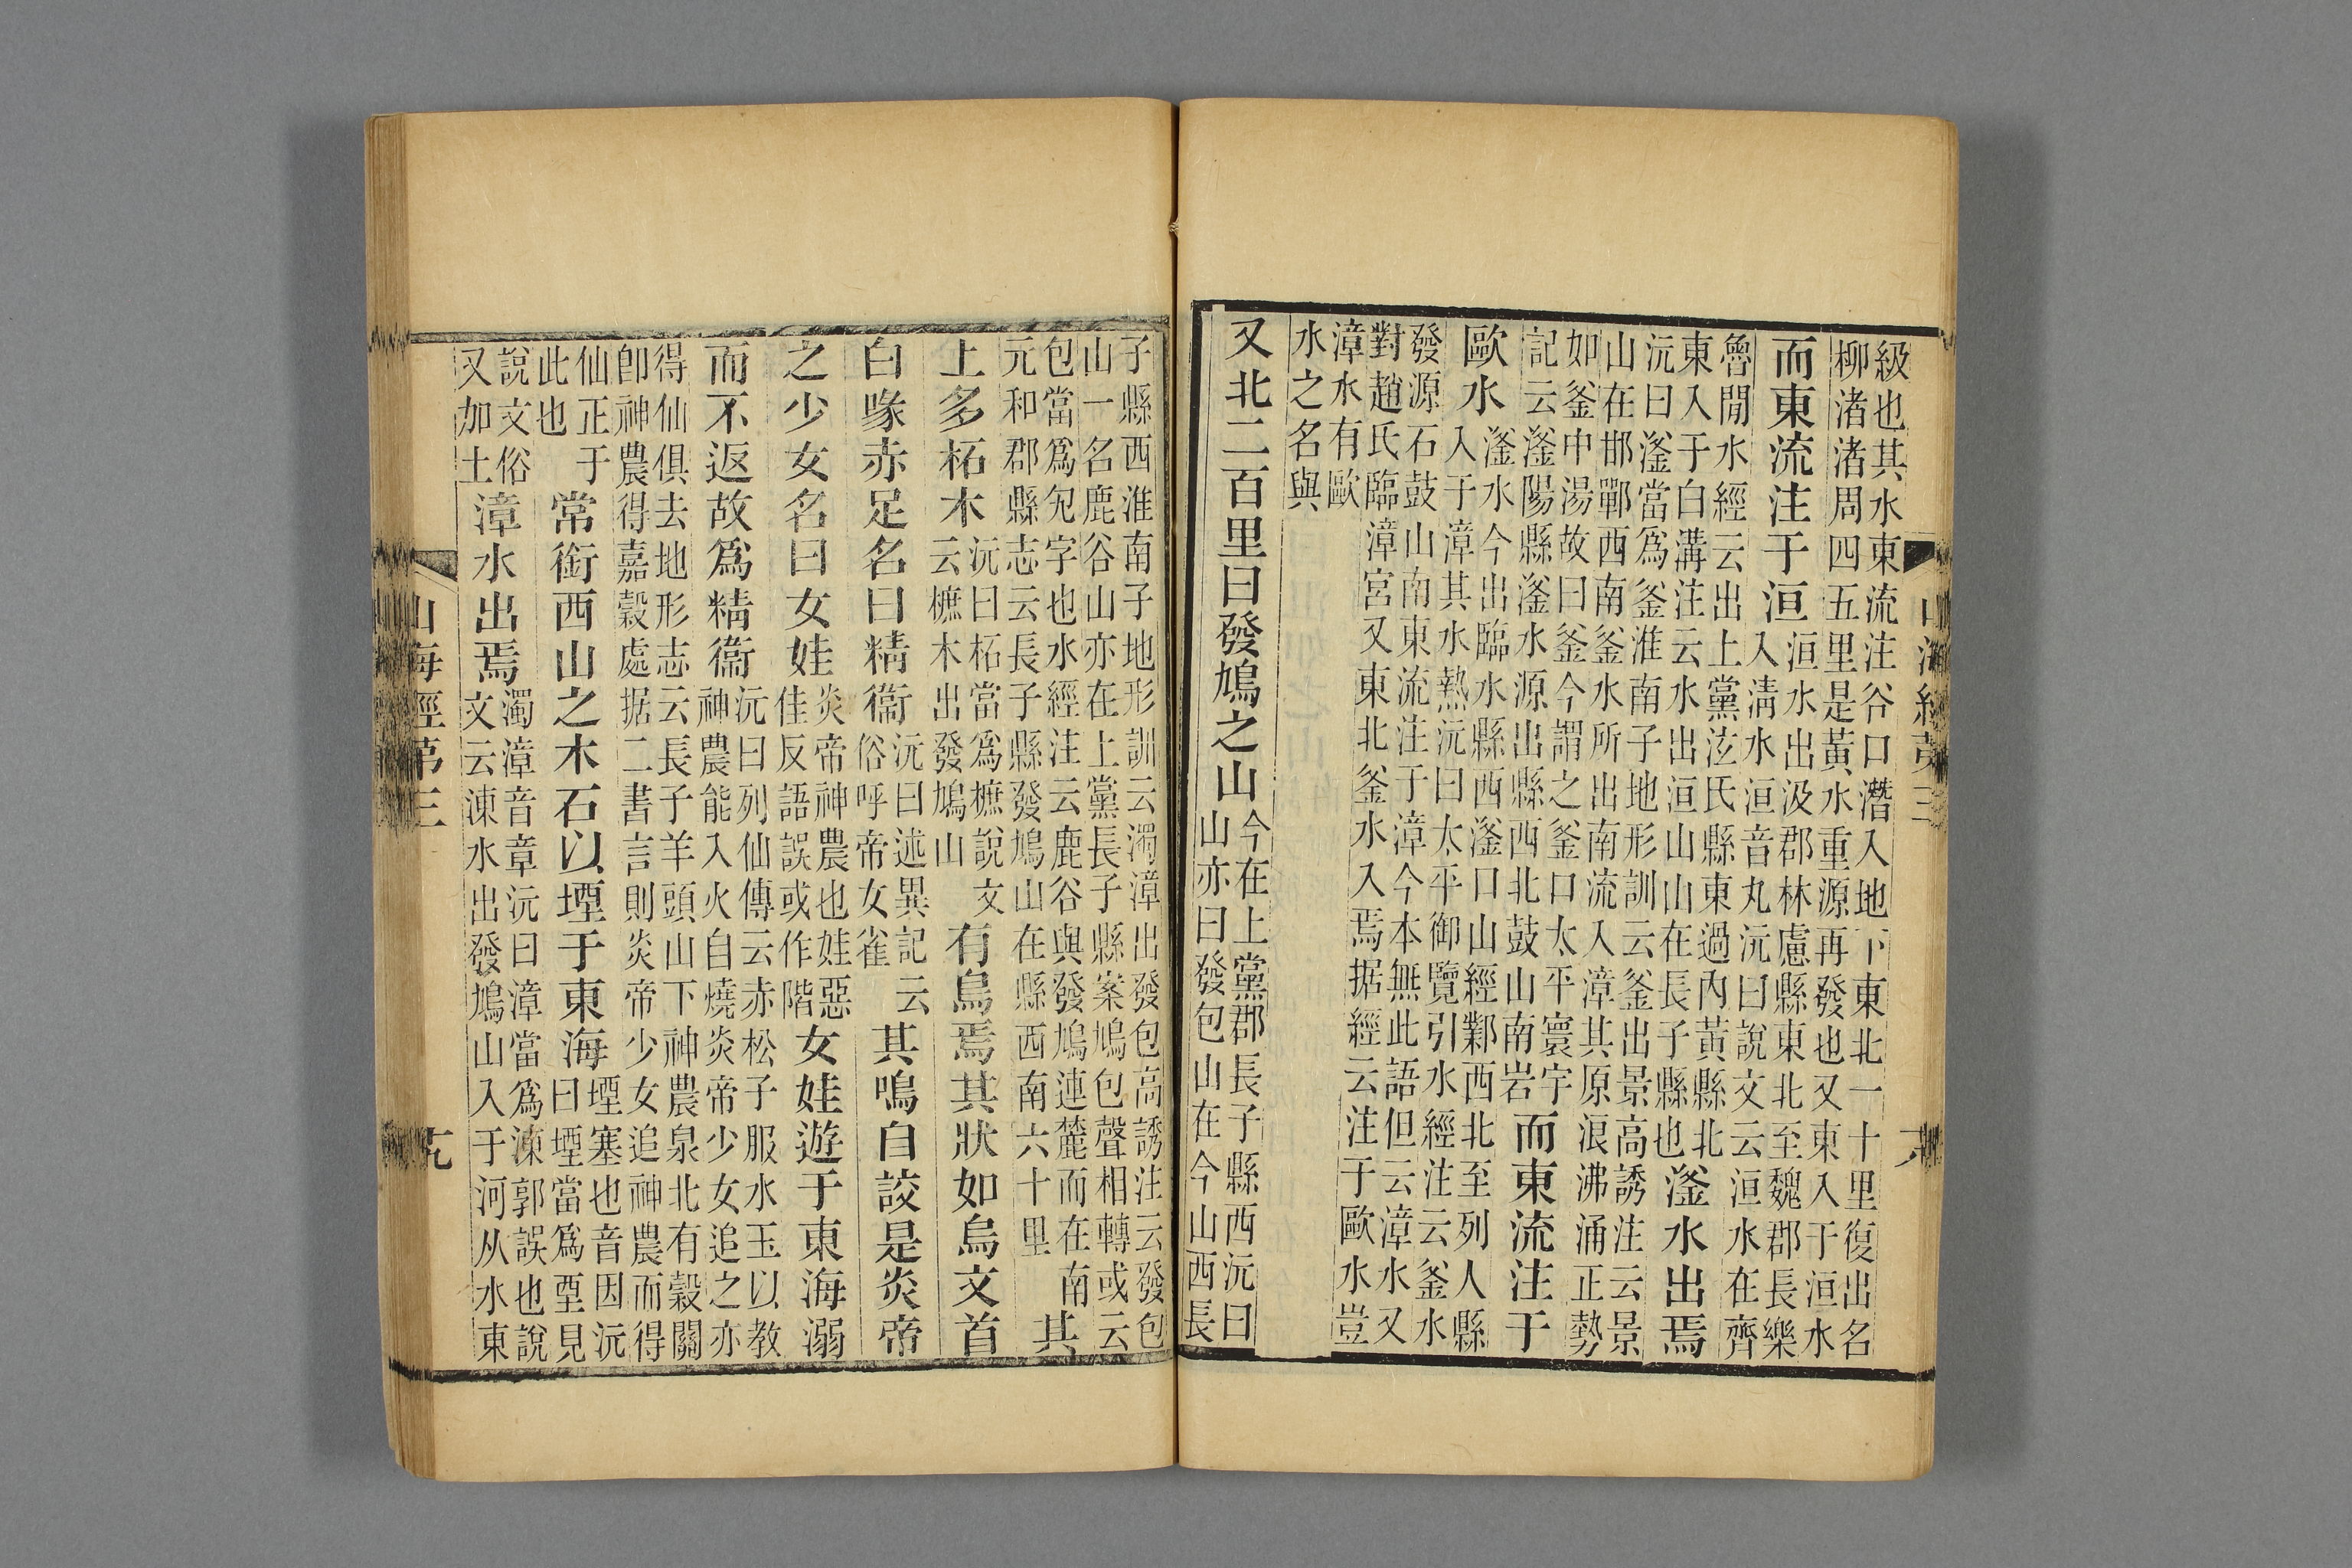 山海經第三
級也其水東流注谷口潛入地下東北一十里復出名
柳渚渚周四五里是黃水重源再發也又東入于洹水
而東流注于洹
洹水出汲郡林慮縣東北至魏郡長樂
入清水洹音丸沅曰說文云洹水在齊
魯閒水經云出上黨泫氏縣東過內黃縣北
東入于白溝注云水出洹山山在長子縣也
滏水出焉
沅曰滏當爲釜淮南子地形訓云釜出景高誘注云景
山在邯鄲西南釜水所出南流入漳其原浪沸涌正勢
如釜中湯故曰釜今謂之釜口太平寰宇
記云滏陽縣滏水源出縣西北鼓山南岩
而東流注于
歐水
滏水今出臨水縣西滏口山經鄴西北至列人縣
入于漳其水熱沅曰太平御覽引水經注云釜水
發源石鼓山南東流注于漳今本無此語但云漳水又
對趙氏臨漳宮又東北釜水入焉据經云注于歐水豈
漳水有歐
水之名與
又北二百里曰發鳩之山
今在上黨郡長子縣西沅曰
山亦曰發包山在今山西長
子縣西淮南子地形訓云濁漳出發包高誘注云發包
山一名鹿谷山亦在上黨長子縣案鳩包聲相轉或云
包當爲字也水經注云鹿谷與發鳩連麓而在南
元和郡縣志云長子縣發鳩山在縣西南六十里
其
上多柘木
沅曰柘當爲樜說文
云樜木出發鳩山
有鳥焉其狀如烏文首
白喙赤足名曰精衞
沅曰述異記云
俗呼帝女雀
其鳴自詨是炎帝
之少女名曰女娃
炎帝神農也娃惡
佳反語誤或作階
女娃遊于東海溺
而不返故爲精衞
沅曰列仙傳云赤松子服水玉以教
神農能入火自燒炎帝少女追之亦
得仙俱去地形志云長子羊頭山下神農泉北有穀關
卽神農得嘉穀處据二書言則炎帝少女追神農而得
仙正于
此也
常銜西山之木石以堙于東海
堙塞也音因沅
曰堙當爲垔見
說文俗
又加土
漳水出焉
濁漳音章沅曰漳當爲涷郭誤也說
文云涷水出發鳩山入于河从水東
山海經第三